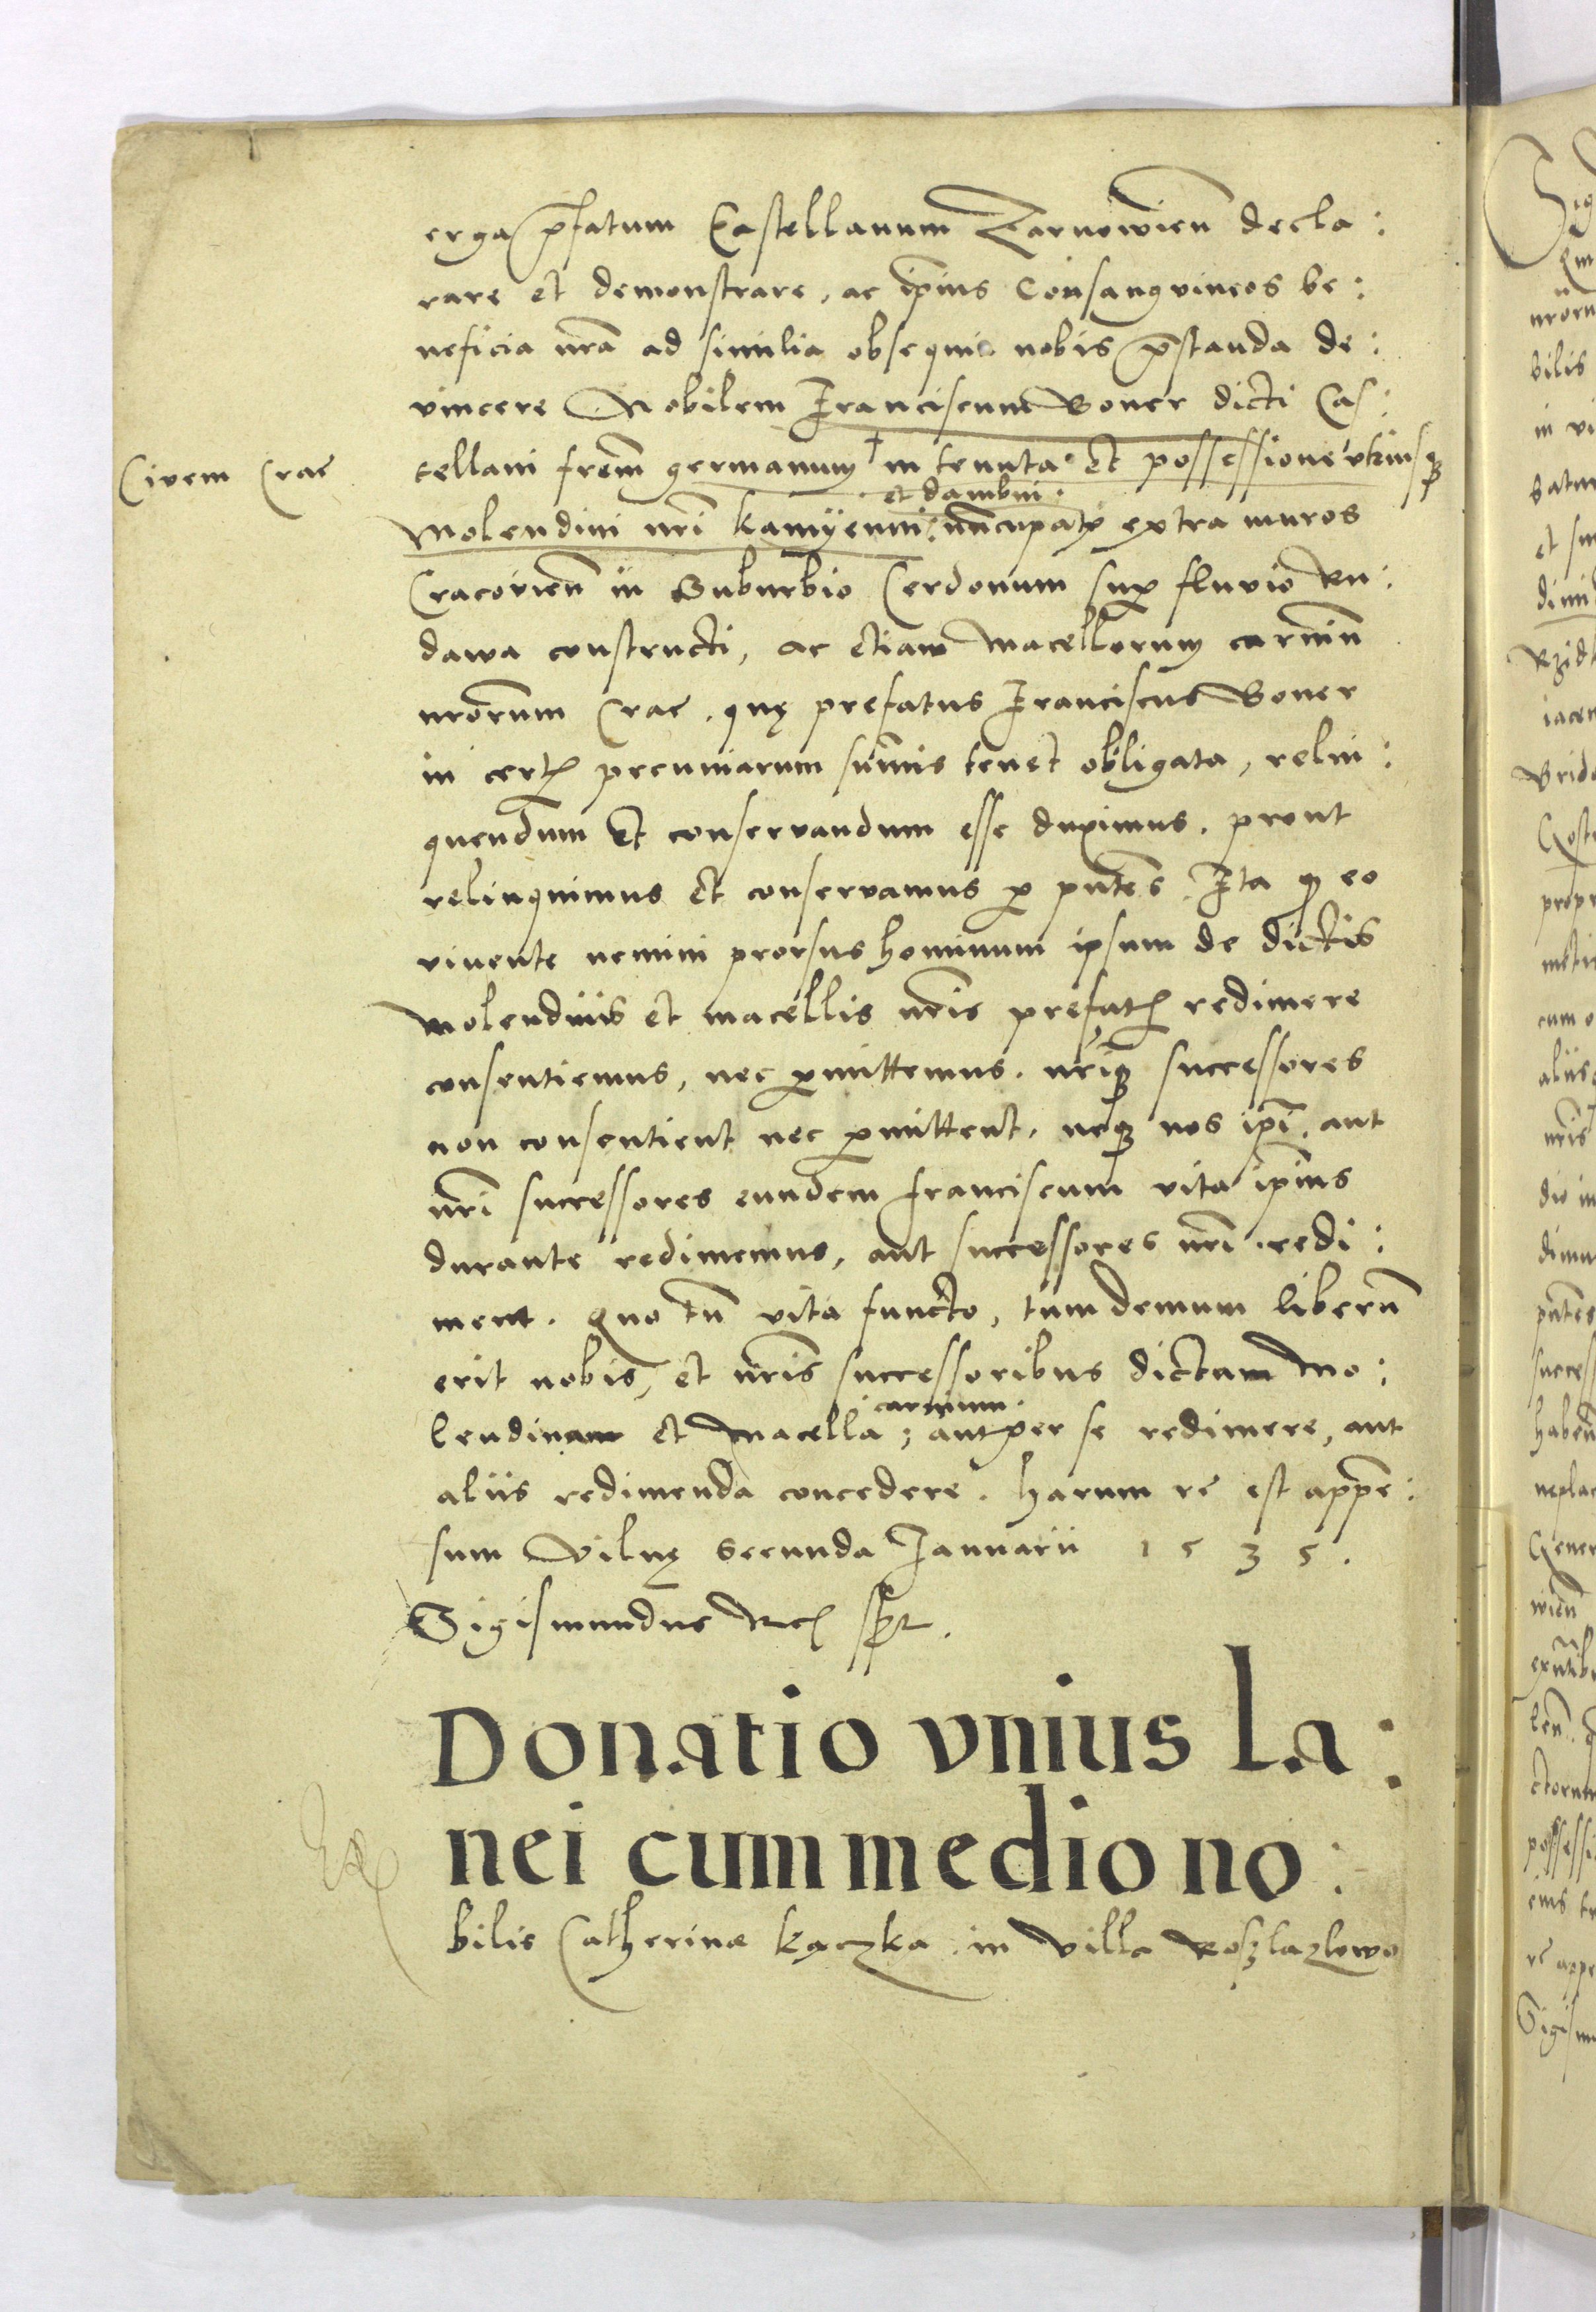 erga p̃fatum Castellanum Zarnowień decla:
rare et demonstrare, ac ipius Consangvineos be:
neficia nrã ad similia obsequia nobis p̃standa de:
vincere Nobilem Franciscum Boner dicti Cas:
Civem Crac
tellani frem̃ germanum † in tenuta et possessione vtriusq
et dambni
Molendini nri Kamÿenni nuncupatr extra muros
Cracovień in Suburbio Cerdonum sup fluvio Ru:
dawa constructi, ac etiam Macellorum carniũ
nrorum Crac. quę prefatus Franciscus Boner
in certis pecuniarum sum̃is tenet obligata, relin:
quendum Et conservandum esse duximus, prout
relinquimus Et conservamus p pntes. Ita q eo
vivente nemini prorsus hominum ipsum de dictis
Molendinis et macellis nris prefatis redimere
consentiemus, nec pmittemus. nriq successores
non consentient nec pmittent, neq nos ipi, aut
nri successores eundem Franciscum vita ipius
durante redimemus, aut successores nri redi:
ment. Quo tñ vita functo, tum demum liberũ
erit nobis, et nris successoribus dictam Mo:
carnium
lendinam Et Macella; aut per se redimere, aut
aliis redimenda concedere. Harum re est appe:
sum Vilnę secunda Januarii 1535.
Sigismundus Rex sspt.
Donatio vnius la:
nei cum medio no:
bilis Catherinæ Kączka in villa Roszlazlowo